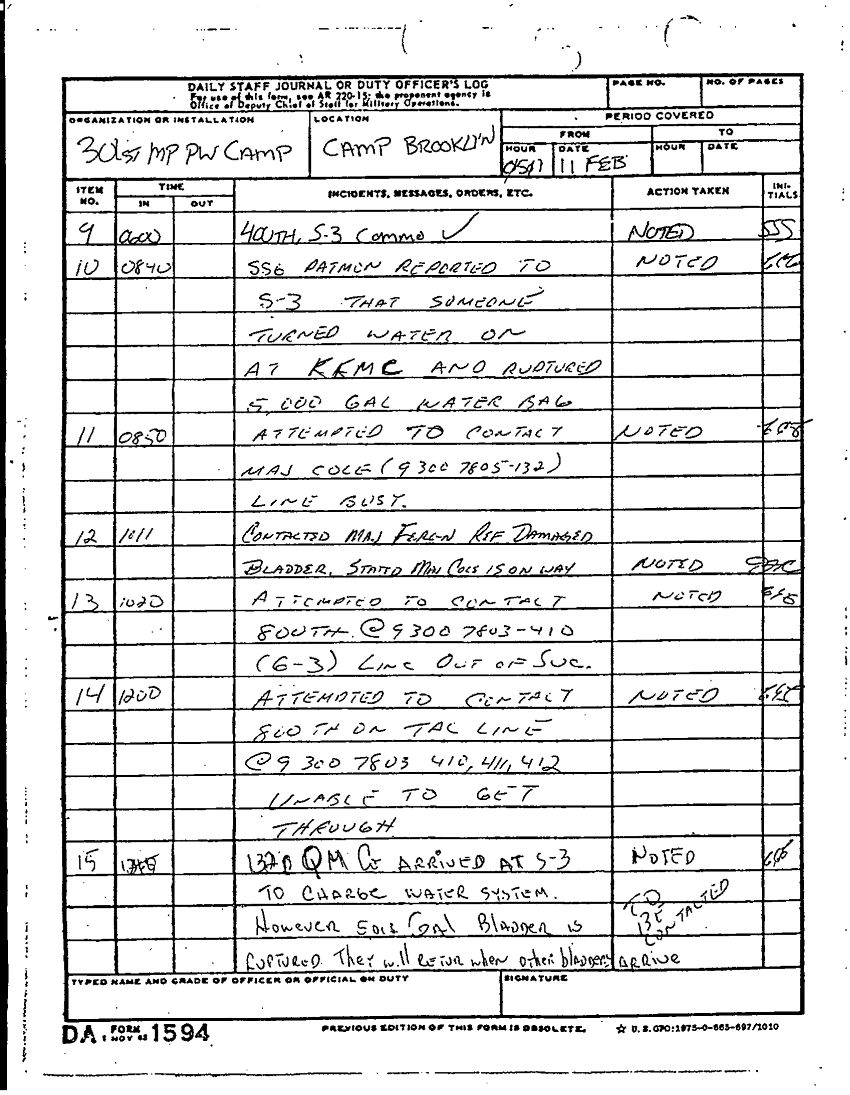 DAILY STAFF JOURNAL OR DUTY OFFICER'S LOG
For use of this form, see AR 220-15; the proponent agency is
Office of Deputy Chief of Staff for Military Operations.
PAGE NO.
NO. OF PAGES
ORGANIZATION OR INSTALLATION
301st MP PW CAMP
LOCATION
CAMP BROOKLYN
PERIOD COVERED
FROM
TO
HOUR
DATE
HOUR
DATE
11 FEB
ITEM NO.
TIME
IN
OUT
INCIDENTS, MESSAGES, ORDERS, ETC.
ACTION TAKEN
INITIALS
9 400TH, S-3 Commo ✓ NOTED SSS
10 0840 SSG PATMON REPORTED TO NOTED
S-3 THAT SOMEONE
TURNED WATER ON
AT KKMC AND RUPTURED
5,000 GAL WATER BAG
11 0850 ATTEMPTED TO CONTACT NOTED
MAJ COLE (9 300 7805-132)
LINE BUSY.
12 1011 CONTACTED MAJ REF DAMAGED
BLADDER. STATED MAJ COLE IS ON WAY NOTED
13 1020 ATTEMPTED TO CONTACT NOTED
800TH @ 9 300 7803-410
(G-3) LINE OUT OF SVC.
14 1200 ATTEMPTED TO CONTACT NOTED
800TH ON TAC LINE
@ 9 300 7803 410, 411, 412
UNABLE TO GET
THROUGH
15 QM Co ARRIVED AT S-3 NOTED
TO CHARGE WATER SYSTEM. TO
HOWEVER GAL BLADDER IS BE CONTACTED
RUPTURED. They will return when other bladders ARRIVE
TYPED NAME AND GRADE OF OFFICER OR OFFICIAL ON DUTY
SIGNATURE
DA FORM 1 NOV 62 1594
PREVIOUS EDITION OF THIS FORM IS OBSOLETE.
☆ U.S. GPO:1975-0-665-697/1010